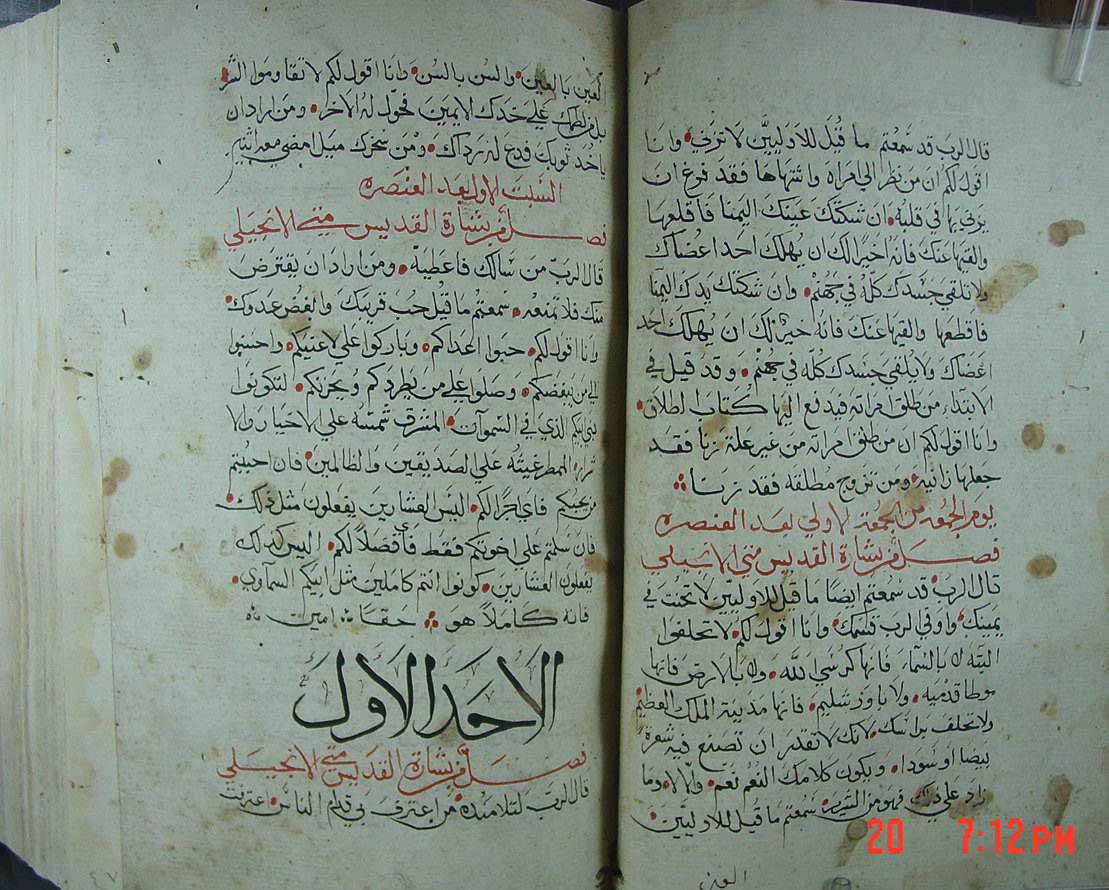 قال الرب قد سمعتم ما قيل للاوليين لا تزني وانا
اقول لكم ان من نظر الي امراه واشتهاها فقد فرغ ان
يزني بها في قلبه ان شكتك عينك اليمنا فاقلعها
والقيها عنك فانه اخير لك ان يهلك احد اعضاك
ولا تلقي جسدك كله في جهنم وان شكتك يدك اليمنا
فاقطعها والقيها عنك فانه خير لك ان يهلك احد
اعضاك ولا يلقي جسدك كله في جهنم وقد قيل في
الابتداء من طلق امراته فيدفع اليها كتاب لطلاق
وانا اقول لكم ان من طلق امراته من غير علة زنا فقد
جعلها زانيه ومن تزوج مطلقه فقد زنا
يوم الجمعه من الجمعة لاولي بعد العنصره
فصل من بشارة القديس متي الانجيلي
قال الرب قد سمعتم ايضا ما قيل للاوليين لا تحنث في
يمينك واوفي الرب قسمك وانا اقول لكم لا تحلفوا
البتة لا بالسماء فانها كرسي الله ولا بالارض فانها
موطا قدميه ولا باورشليم فانها مدينة الملك العظيم
ولا تحلف براسك لانك لا تقدر ان تصنع فيه شعرة
بيضا او سودا ويكون كلامك النعم نعم والا لا وما
زاد علي ذلك فهو من الشرير سمعتم ما قيل للاوليين
العين
العين بالعين والسن بالسن وانا اقول لكم لا تقاوموا الشر
بل من لطمك علي خدك الايمين فحول له الاخر ومن اراد ان
ياخد ثوبك فدع له رداك ومن سخرك ميل امضي معه اثنين
السبت لاول بعد العنصره
فصل من بشارة القديس متي الانجيلي
قال الرب من سالك فاعطيه ومن اراد ان يقترض
منك فلا تمنعه سمعتم ما قيل حب قريبك وابغض عدوك
وانا اقول لكم حبوا اعداكم وباركوا علي لاعنيكم واحسنوا
الي من يبغضكم وصلوا علي من يطردكم ويحزنكم لتكونوا
بني ابيكم الذي في السموات المشرق شمسه علي الاخيار والا
شرار الممطر غيثه علي الصديقين والظالمين فان احببتم
من يحبكم فاي اجرا لكم اليس العشارين يفعلون مثل ذلك
فان سلمتم علي اخوتكم فقط فاي فضلا لكم اليس كدلك
يفعلون العشارين كونوا انتم كاملين مثل ابيكم السماوي
فانه كاملا هو حقا امين
الاحد الاول
فصل من بشارة القديس متي الانجيلي
قال الرب لتلاميذه من اعترف بي قدام الناس اعترفت
٤٧
20 7:12 PM